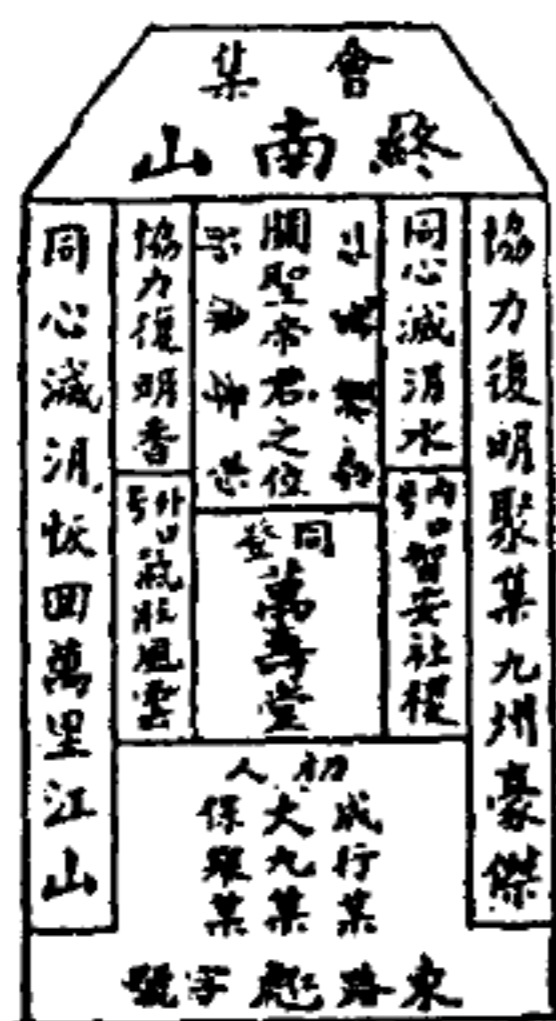 會集
終南山
協力復明聚集九州豪傑
同心滅清水
內口號
智安社稷
關聖帝君之位
同登
萬壽堂
協力復明香
外口號
氣壯風雲
同心滅清恢回萬里江山
初人
成行某
大九某
保羅某
東路彪字號